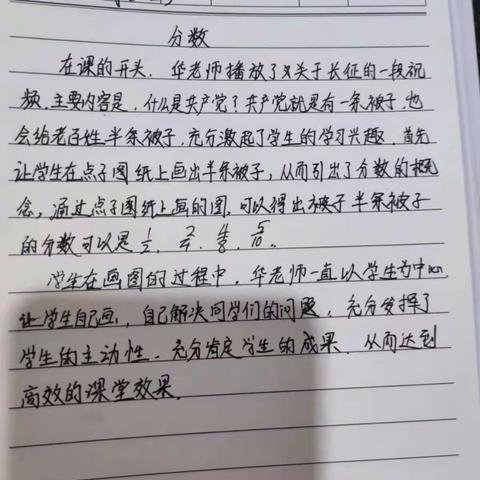 分数
在课的开头，华老师播放了关于长征的一段视
频，主要内容是，什么是共产党？共产党就是有一条被子，也
会给老百姓半条被子，充分激起了学生的学习兴趣，首先
让学生在点子图纸上画出半条被子，从而引出了分数的概
念，通过点子图纸上画的图，可以得出被子半条被子
的分数可以是 1/2、2/4、4/8、5/10。
学生在画图的过程中，华老师一直以学生为中心，
让学生自己画，自己解决同学们的问题，充分发挥了
学生的主动性，充分肯定学生的成果，从而达到
高效的课堂效果。